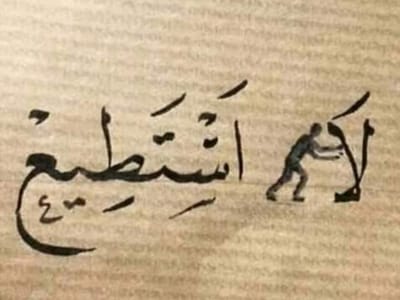 لَا اَسْتَطِيعْ